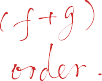 (f+g)
order